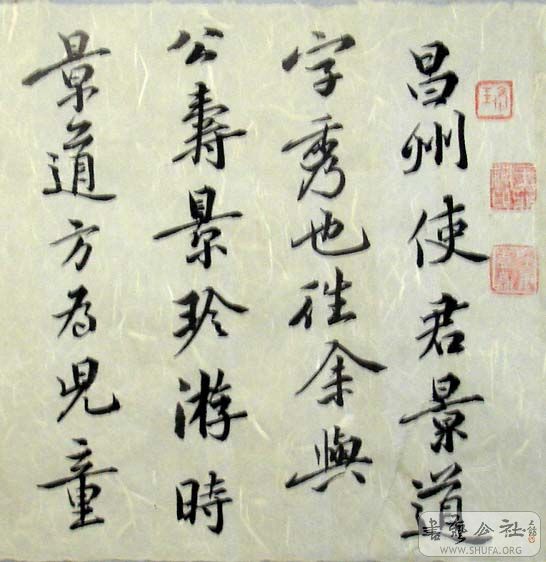 昌州使君景道
字秀也往余與
公壽景珍游時
景道方為兒童
書藝公社
WWW.SHUFA.ORG